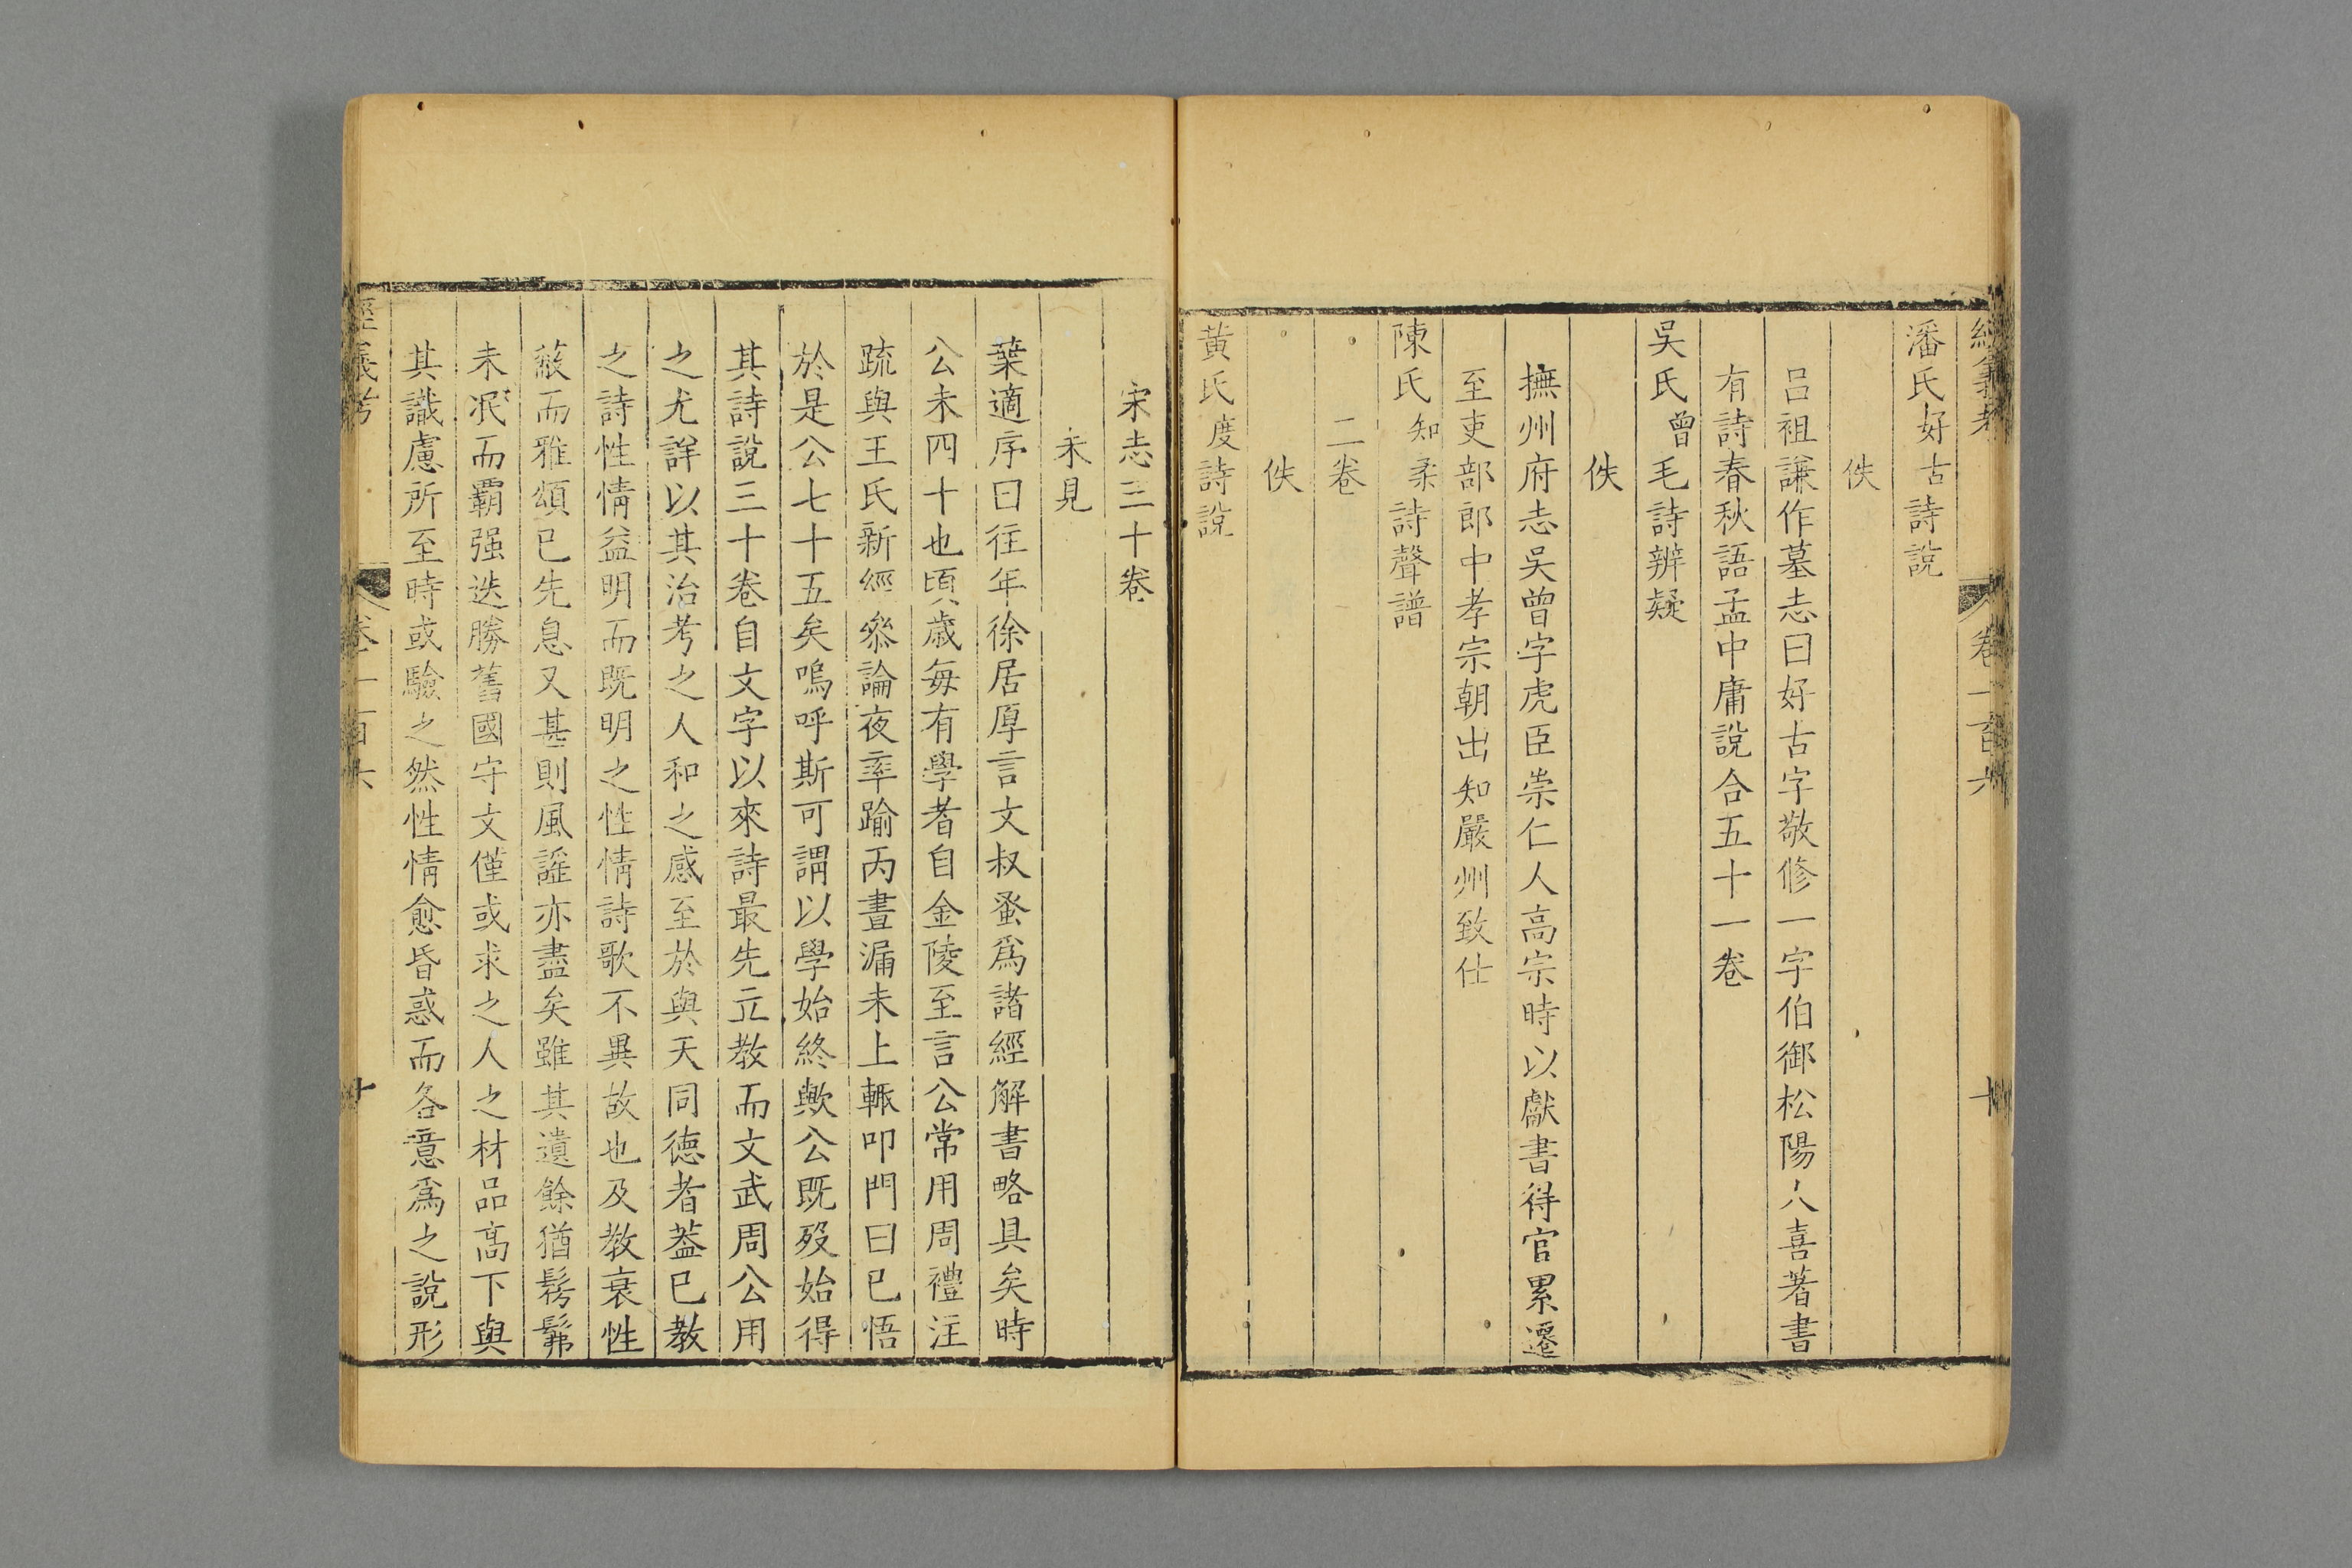 經義考 卷一百六 十
潘氏好古詩說
佚
呂祖謙作墓志曰好古字敬修一字伯御松陽人喜著書
有詩春秋語孟中庸說合五十一卷
吳氏曾毛詩辨疑
佚
撫州府志吳曾字虎臣崇仁人高宗時以獻書得官累遷
至吏部郎中孝宗朝出知嚴州致仕
陳氏知柔詩聲譜
二卷
佚
黃氏度詩說
宋志三十卷
未見
葉適序曰往年徐居厚言文叔蚤爲諸經解書略具矣時
公未四十也頃歲每有學者自金陵至言公常用周禮注
疏與王氏新經叅論夜率踰丙晝漏未上輒叩門曰已悟
於是公七十五矣嗚呼斯可謂以學始終歟公既歿始得
其詩說三十卷自文字以來詩最先立教而文武周公用
之尤詳以其治考之人和之感至於與天同德者蓋已教
之詩性情益明而既明之性情詩歌不異故也及教衰性
蔽而雅頌已先息又甚則風謡亦盡矣雖其遺餘猶髣髴
未冺而霸强迭勝舊國守文僅或求之人之材品高下與
其識慮所至時或驗之然性情愈昏惑而各意爲之說形
經義考 卷一百六 十